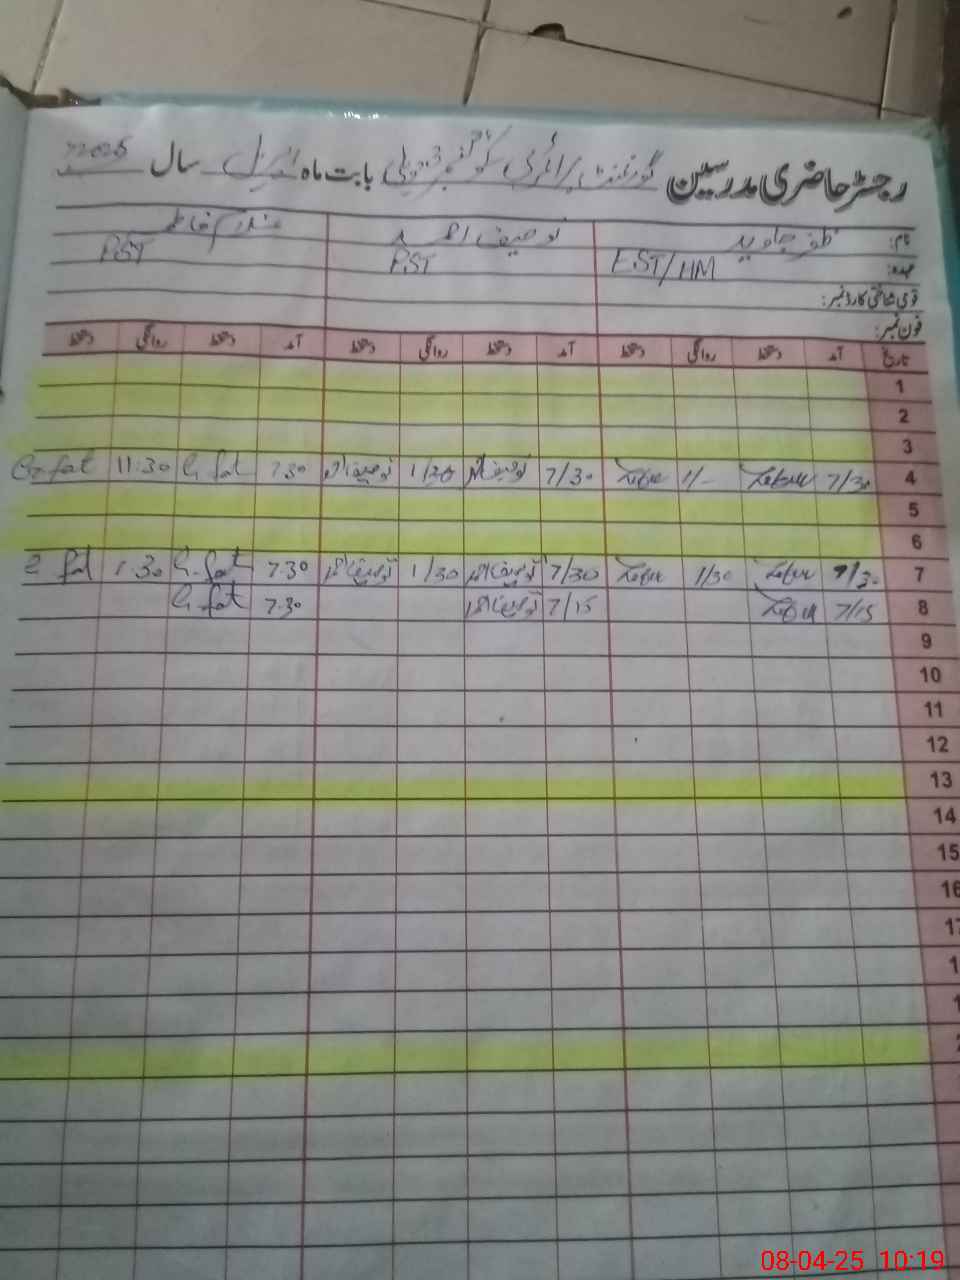 رجسٹر حاضری مدرسین گورنمنٹ پرائمری سکول بابت ماہ اپریل سال 2025
نام: ظفر جاوید توصیف احمد فاطمہ
عہدہ: EST/HM PST PST
قومی شناختی کارڈ نمبر:
فون نمبر:
تاریخ آمد دستخط روانگی دستخط آمد دستخط روانگی دستخط آمد دستخط روانگی دستخط
1
2
3
4 7/30 Zafar 1/- Zafar 7/30 توصیف احمد 1/30 توصیف احمد 7.30 G. fat 11:30 G. fat
5
6
7 7/30 Zafar 1/30 Zafar 7/30 توصیف احمد 1/30 توصیف احمد 7.30 G. fat 1.30 fat
8 7/15 Zafar 7/15 توصیف احمد 7.30 G. fat
9
10
11
12
13
14
15
16
08-04-25 10:19